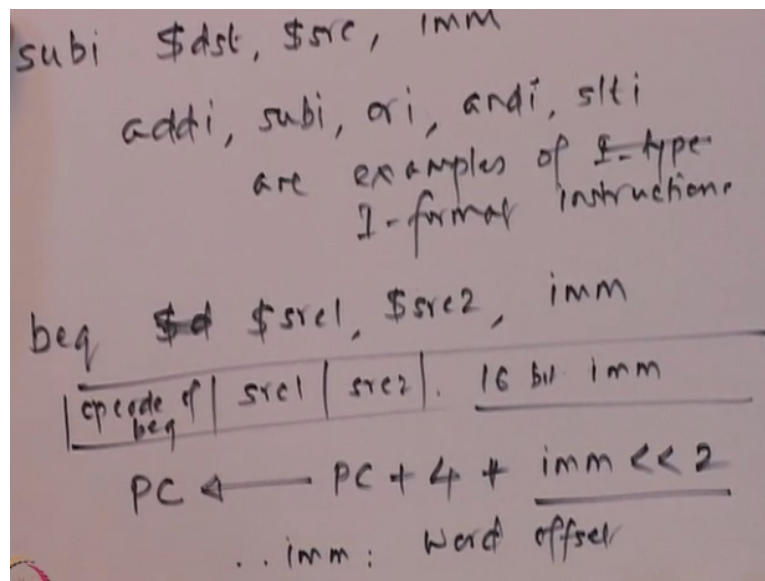 subi $dst, $src, imm
addi, subi, ori, andi, slti
are examples of I-type
I-format instructions
beq $d $src1, $src2, imm
opcode of beq | src1 | src2 | 16 bit imm
PC ← PC + 4 + imm << 2
.. imm: Word offset